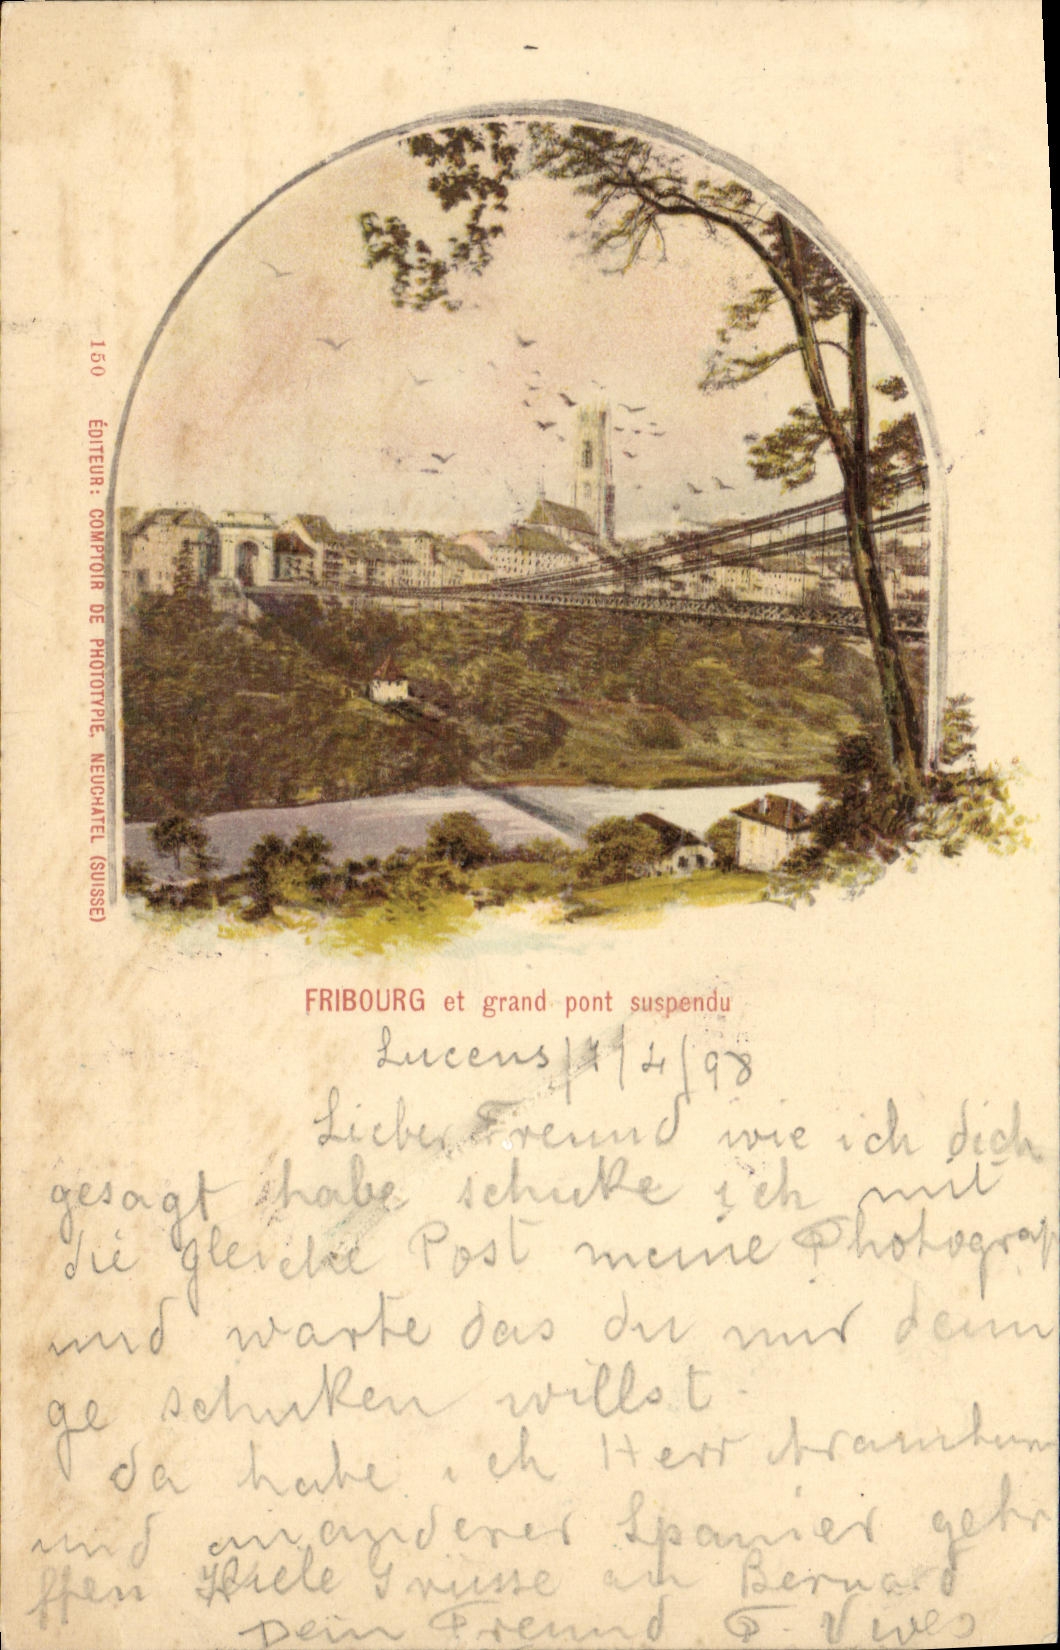 150 ÉDITEUR: COMPTOIR DE PHOTOTYPIE, NEUCHATEL (SUISSE)
FRIBOURG et grand pont suspendu
Lucens /7/4/98
Lieber Freund wie ich dich
gesagt habe schicke ich mit
die gleiche Post meine Photograp
und warte das du mir dein
ge schicken willst.
da habe ich Herr
und anderer Spanier getr
ffen Viele Grüsse an Bernard
Dein Freund F. Vives